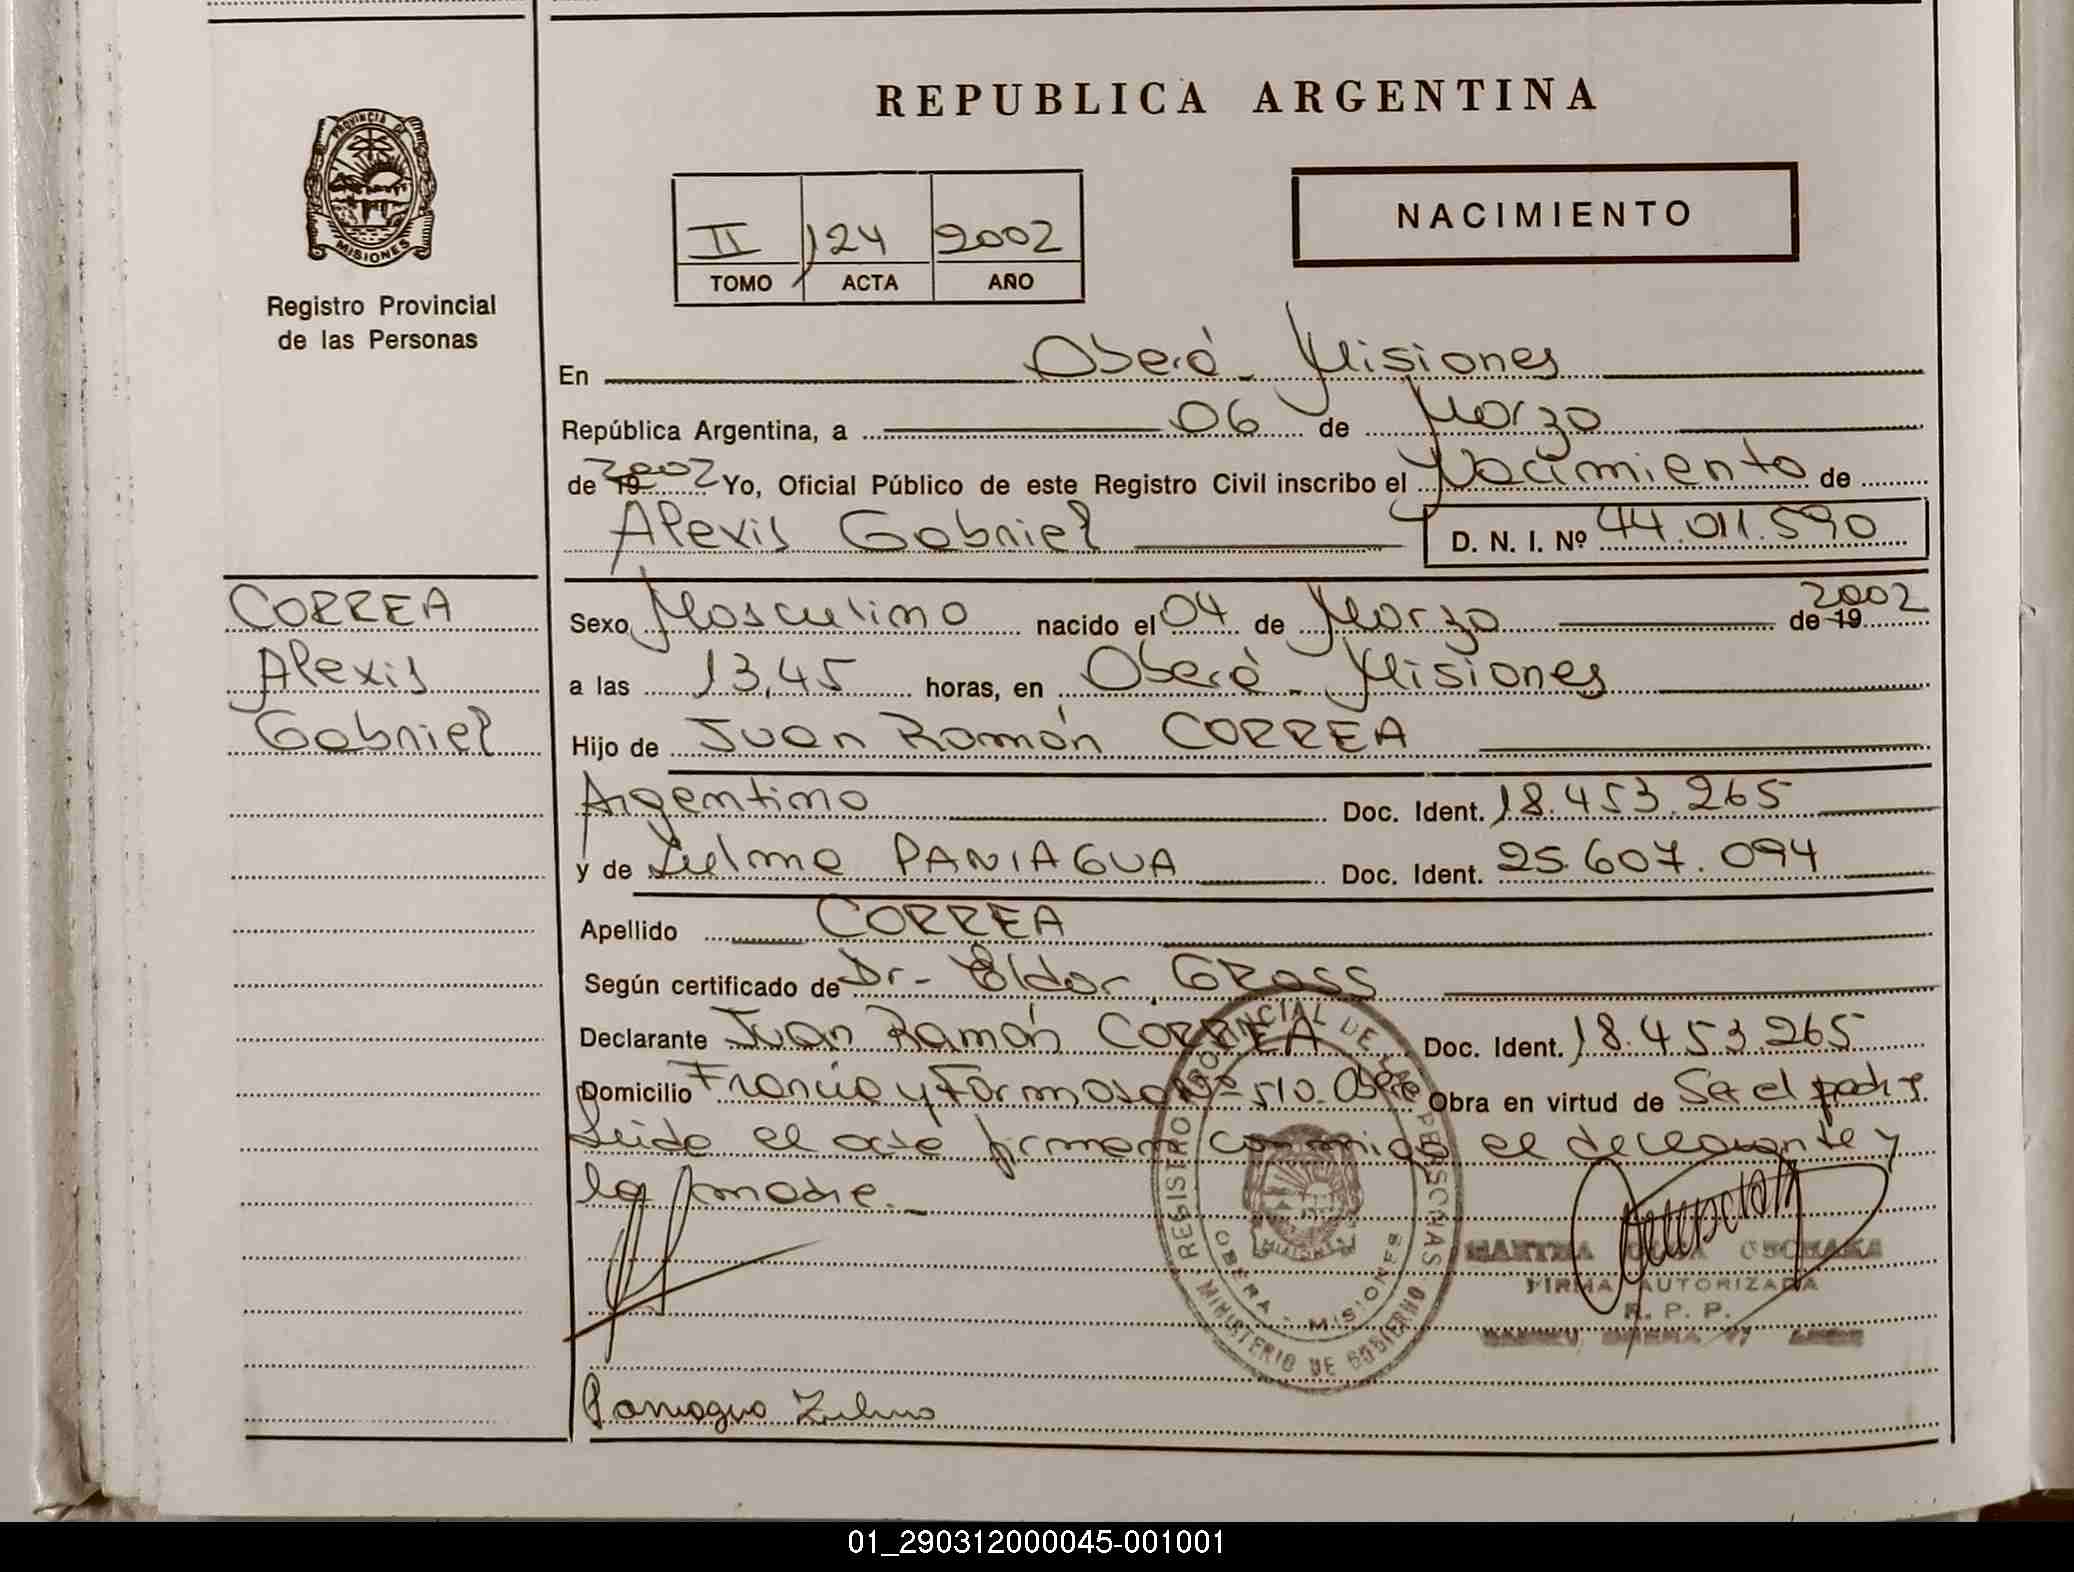 REPUBLICA ARGENTINA
PROVINCIA DE
MISIONES
Registro Provincial
de las Personas
NACIMIENTO
II 124 2002
TOMO ACTA AÑO
En Oberá - Misiones
República Argentina, a 06 de Marzo
de 19 2002 Yo, Oficial Público de este Registro Civil inscribo el Nacimiento de
Alexis Gabriel D. N. I. Nº 44.011.590
CORREA
Alexis
Gabriel
Sexo Masculino nacido el 04 de Marzo de 19 2002
a las 13,45 horas, en Oberá - Misiones
Hijo de Juan Ramón CORREA
Argentino Doc. Ident. 18.453.265
y de Zulma PANIAGUA Doc. Ident. 25.607.094
Apellido CORREA
Según certificado de Dr - Eldor GROSS
Declarante Juan Ramón CORREA Doc. Ident. 18.453.265
Domicilio Francia y Formosa Nº 510. Oberá Obra en virtud de Ser el padre
Leida el acta firman conmigo el declarante y
la madre. -
REGISTRO PROVINCIAL DE LAS PERSONAS
OBERA - MISIONES
MINISTERIO DE GOBIERNO
FIRMA AUTORIZADA
R. P. P.
Paniagua Zulma
01_290312000045-001001